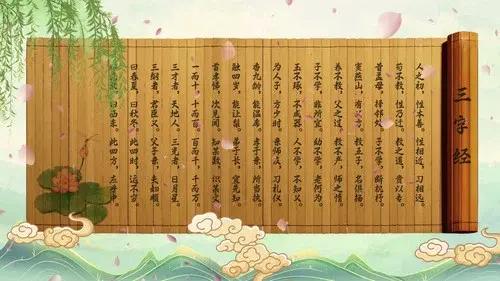 三字经
人之初，性本善。性相近，习相远。
苟不教，性乃迁。教之道，贵以专。
昔孟母，择邻处。子不学，断机杼。
窦燕山，有义方。教五子，名俱扬。
养不教，父之过。教不严，师之惰。
子不学，非所宜。幼不学，老何为。
玉不琢，不成器。人不学，不知义。
为人子，方少时。亲师友，习礼仪。
香九龄，能温席。孝于亲，所当执。
融四岁，能让梨。弟于长，宜先知。
首孝悌，次见闻。知某数，识某文。
一而十，十而百。百而千，千而万。
三才者，天地人。三光者，日月星。
三纲者，君臣义。父子亲，夫妇顺。
曰春夏，曰秋冬。此四时，运不穷。
曰南北，曰西东。此四方，应乎中。